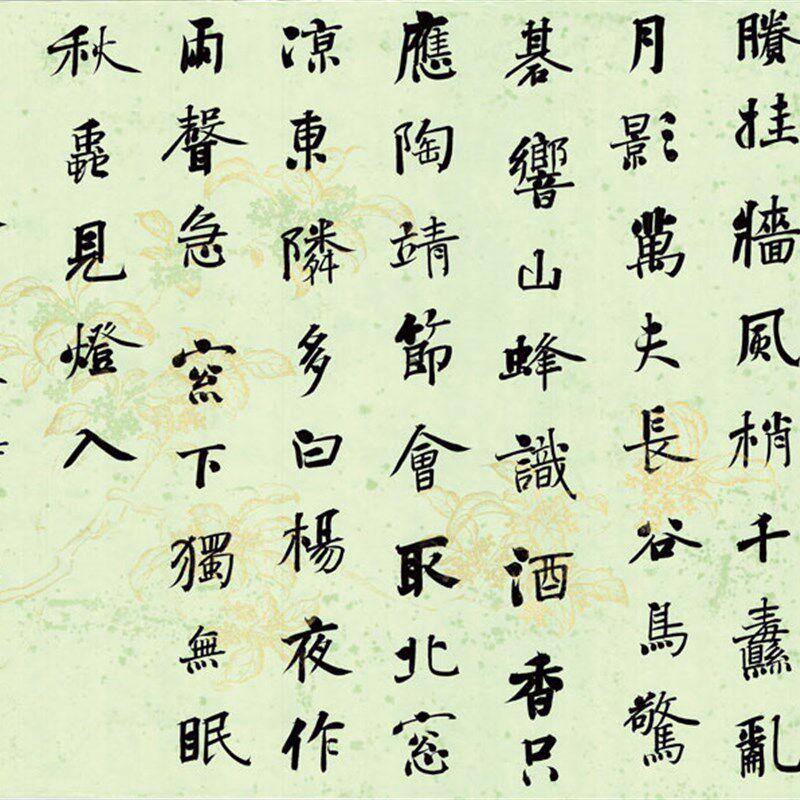 賸挂牆風梢千纛亂
月影萬夫長谷鳥驚
碁響山蜂識酒香只
應陶靖節會取北窓
凉東隣多白楊夜作
雨聲急窓下獨無眠
秋蟲見燈入